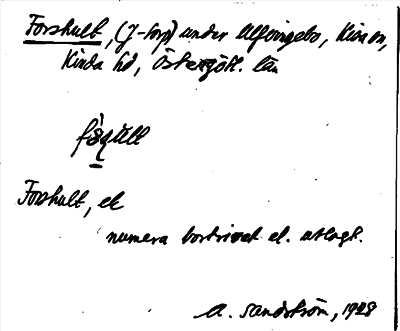 Forshult, (J-torp) under Alvingebo, Kisa sn,
Kinda hd, Östergötl. län
Forshult, ek
numera bortrivet el. utlagt.
A. Sandström, 1928